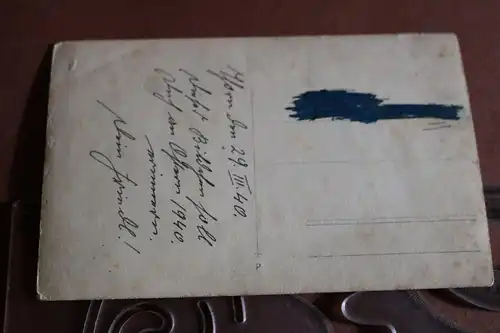 den 29. III. 40.
Dieses Bildchen soll
Dich an Ostern 1940.
erinnern.
Mein Freindl!